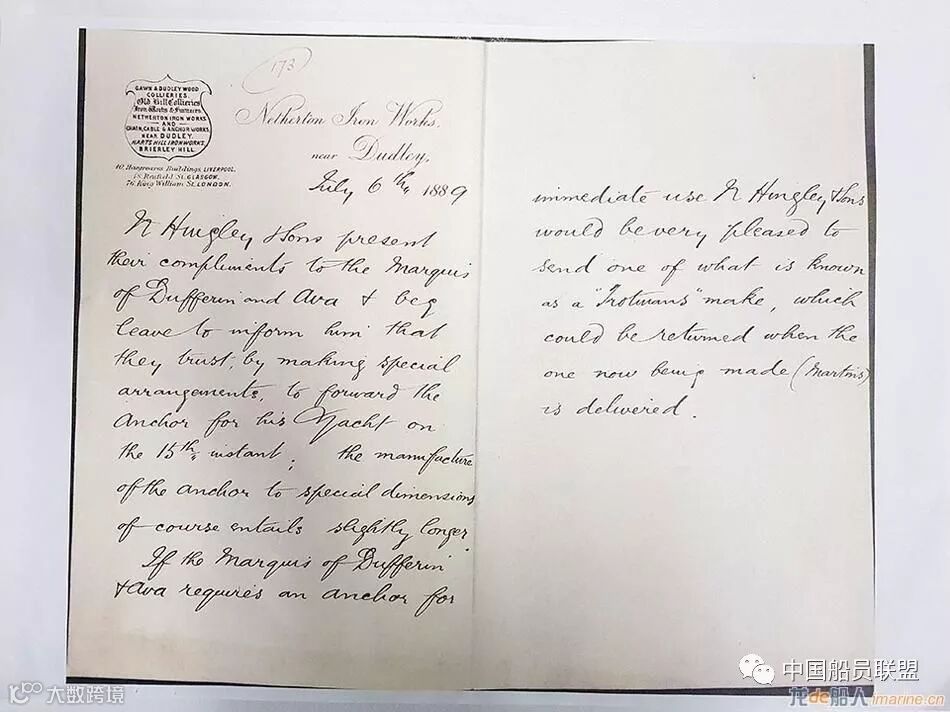 173
GAWN & DUDLEY WOOD
COLLIERIES.
Old Hill Collieries
Iron Works & Furnaces.
NETHERTON IRON WORKS
AND
CHAIN, CABLE & ANCHOR WORKS
NEAR DUDLEY.
HARTS HILL IRONWORKS.
BRIERLEY HILL.
10, Hargreaves Buildings, LIVERPOOL.
18, Renfield St. GLASGOW.
76, King William St. LONDON.
Netherton Iron Works,
near Dudley,
July 6th 1889
N Hingley & Sons present
their compliments to the Marquis
of Dufferin and Ava & beg
leave to inform him that
they trust, by making special
arrangements, to forward the
Anchor for his Yacht on
the 15th instant; the manufacture
of the anchor to special dimensions
of course entails slightly longer.
If the Marquis of Dufferin
& Ava requires an anchor for
immediate use N Hingley & Sons
would be very pleased to
send one of what is known
as a "Trotmans" make, which
could be returned when the
one now being made (Martins)
is delivered.
中国船员联盟
大数跨境
龙de船人 imarine.cn